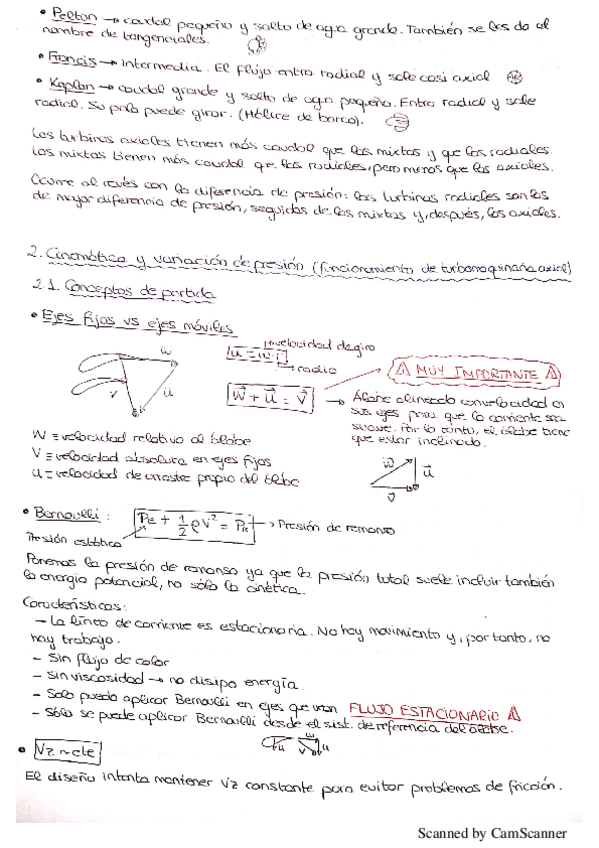 • Pelton → caudal pequeño y salto de agua grande. También se les da el
nombre de tangenciales.
• Francis → Intermedia. El flujo entra radial y sale casi axial
• Kaplan → caudal grande y salto de agua pequeño. Entra radial y sale
radial. Su pala puede girar. (Hélice de barco).
Las turbinas axiales tienen más caudal que las mixtas y que las radiales.
Las mixtas tienen más caudal que las radiales, pero menos que las axiales.
Ocurre al revés con la diferencia de presión: las turbinas radiales son las
de mayor diferencia de presión, seguidas de las mixtas y, después, las axiales.
2. Cinemática y variación de presión (funcionamiento de turbomaquinaria axial)
2.1. Conceptos de partida
• Ejes fijos vs ejes móviles
w
v
u
u = w · r
→ velocidad de giro
→ radio
w + u = v
⚠ MUY IMPORTANTE ⚠
→ Álabe alineado con velocidad en
sus ejes para que la corriente sea
suave. Por lo tanto, el álabe tiene
que estar inclinado.
w
u
v
W ≡ velocidad relativa al álabe
V ≡ velocidad absoluta en ejes fijos
U ≡ velocidad de arrastre propia del álabe
• Bernouilli: Pe + 1/2 ρV² = PR → Presión de remanso
Presión estática
Ponemos la presión de remanso ya que la presión total suele incluir también
la energía potencial, no sólo la cinética.
Características:
- La línea de corriente es estacionaria. No hay movimiento y, por tanto, no
hay trabajo.
- Sin flujo de calor
- Sin viscosidad → no disipa energía.
- Solo puedo aplicar Bernouilli en ejes que vean FLUJO ESTACIONARIO ⚠
- Sólo se puede aplicar Bernouilli desde el sist. de referencia del álabe.
u w
v u
• Vz ~ cte
El diseño intenta mantener Vz constante para evitar problemas de fricción.
Scanned by CamScanner